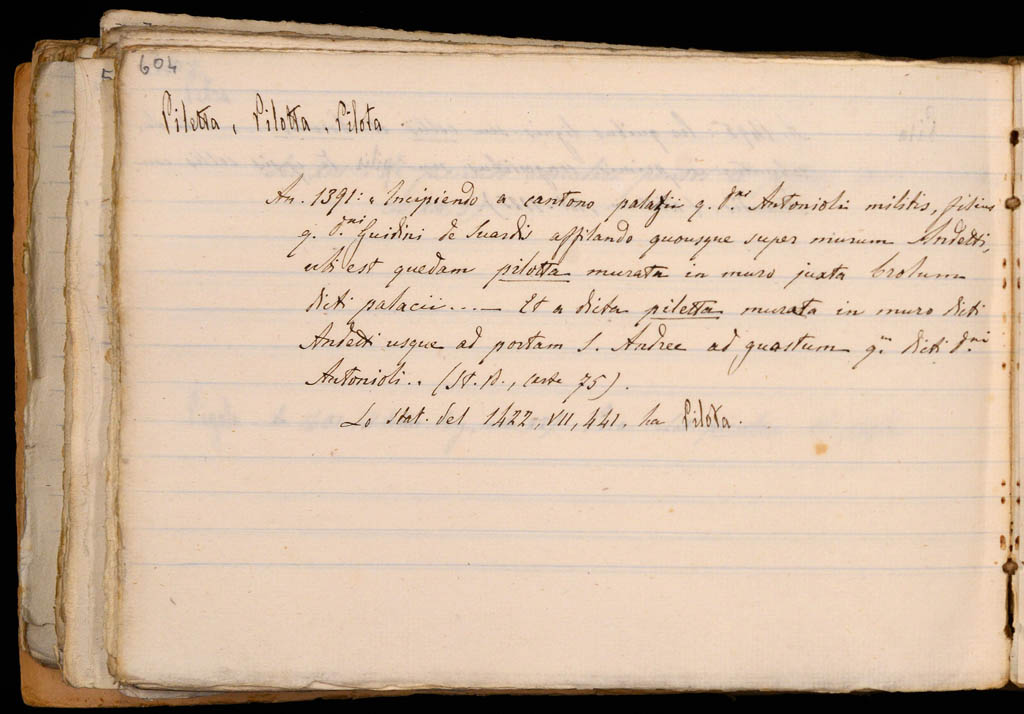 604
Piletta, Pilotta, Pilota
An. 1391: « Incipiendo a cantono palatii q. d.ni Antonioli militis, filius
q. d.ni Guidini de Suardis affilando quousque super murum Andetti,
ubi est quedam pilotta murata in muro juxta brolum
dicti palacii .... — Et a dicta piletta murata in muro dicti
Andetti usque ad portam S. Andree ad guastum q.m dicti d.ni
Antonioli.. (St. B., carte 75).
Lo stat. del 1422, VII, 441. ha Pilota.